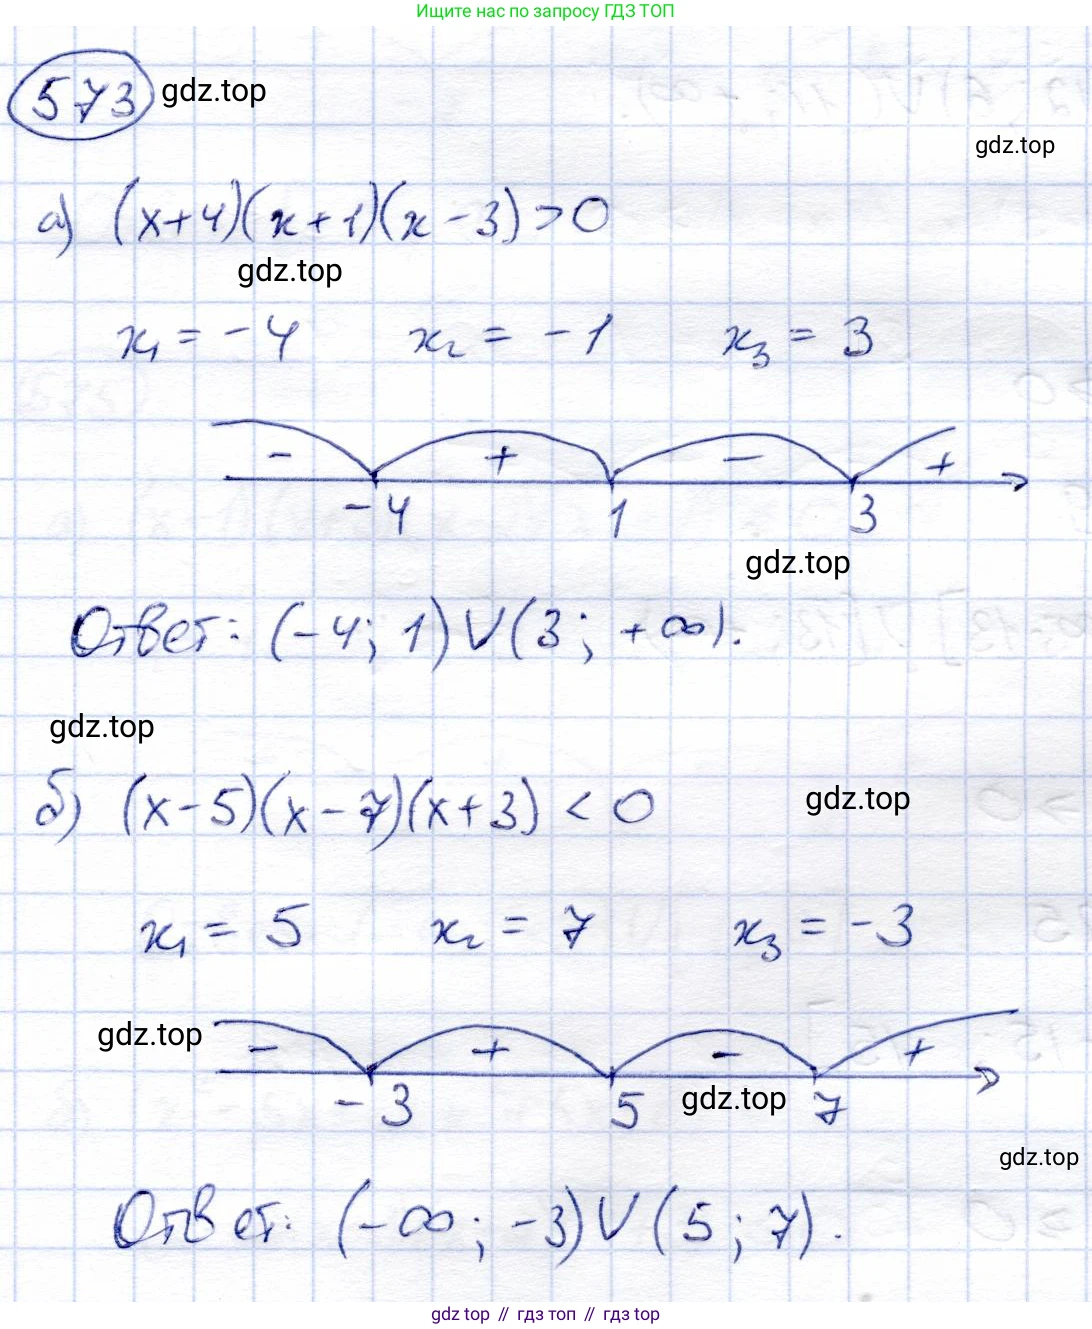 Ищите нас по запросу ГДЗ ТОП
573 gdz.top
gdz.top
а) (x+4)(x+1)(x-3)>0
gdz.top
x₁ = -4 x₂ = -1 x₃ = 3
- + - +
-4 1 3
gdz.top
Ответ: (-4; 1) V (3; +∞).
gdz.top
б) (x-5)(x-7)(x+3) < 0
gdz.top
x₁ = 5 x₂ = 7 x₃ = -3
gdz.top
- + - +
-3 5 gdz.top 7
gdz.top
Ответ: (-∞; -3) V (5; 7).
gdz.top // гдз топ // gdz.top